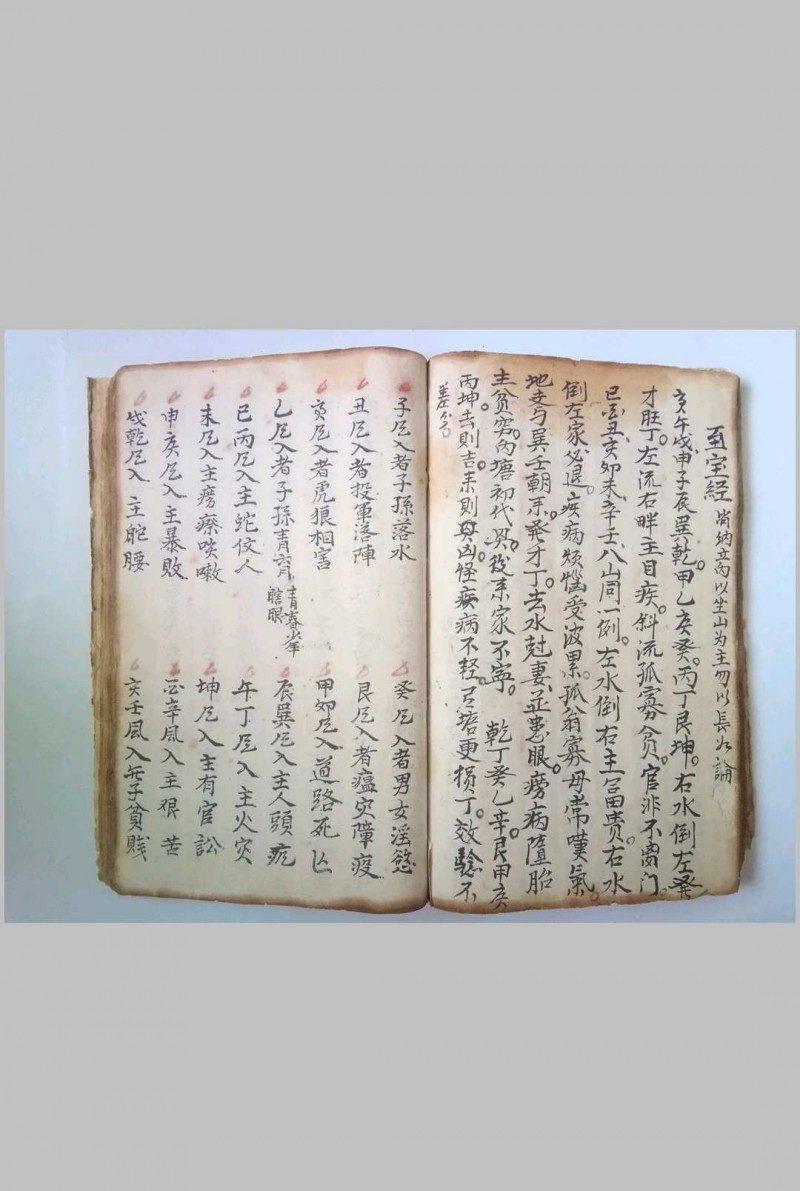 至宝经 以坐山为主勿以長水論
亥午戌申子辰巽乾。甲乙亥癸。丙丁艮坤。右水倒左癸
才旺丁。左流右畔主目疾。斜流孤寡貧。官非不离门。
巳酉丑、亥卯未、辛壬、八山同一例。左水倒右主富贵。右水
倒左家必退。疾病煩惱受波累。孤翁寡母常嘆氣。
地支与巽壬朝來。癸才丁。去水尅妻並患眼。癆病墮胎
主貧窮。内塘初代興。後來家不寧。 乾丁癸乙辛艮甲亥
丙坤。去則吉。来則凶怪疾病不輕。塘更損丁效驗不
差
子凹入者子孫落水
癸凹入者男女淫慾
丑凹入者投軍落陣
艮凹入者瘟灾障疫
寅凹入者虎狼相害
甲卯凹入道路死亡
乙凹入者子孫青 青春少年 瞎眼
辰巽凹入主人頭
巳丙凹入主蛇伎人
午丁凹入主火灾
未凹入主癆瘵咳嗽
坤凹入主有官訟
申凹入主暴敗
酉辛風入主狠苦
戌乾凹入主駝腰
亥壬風入無子貧賤